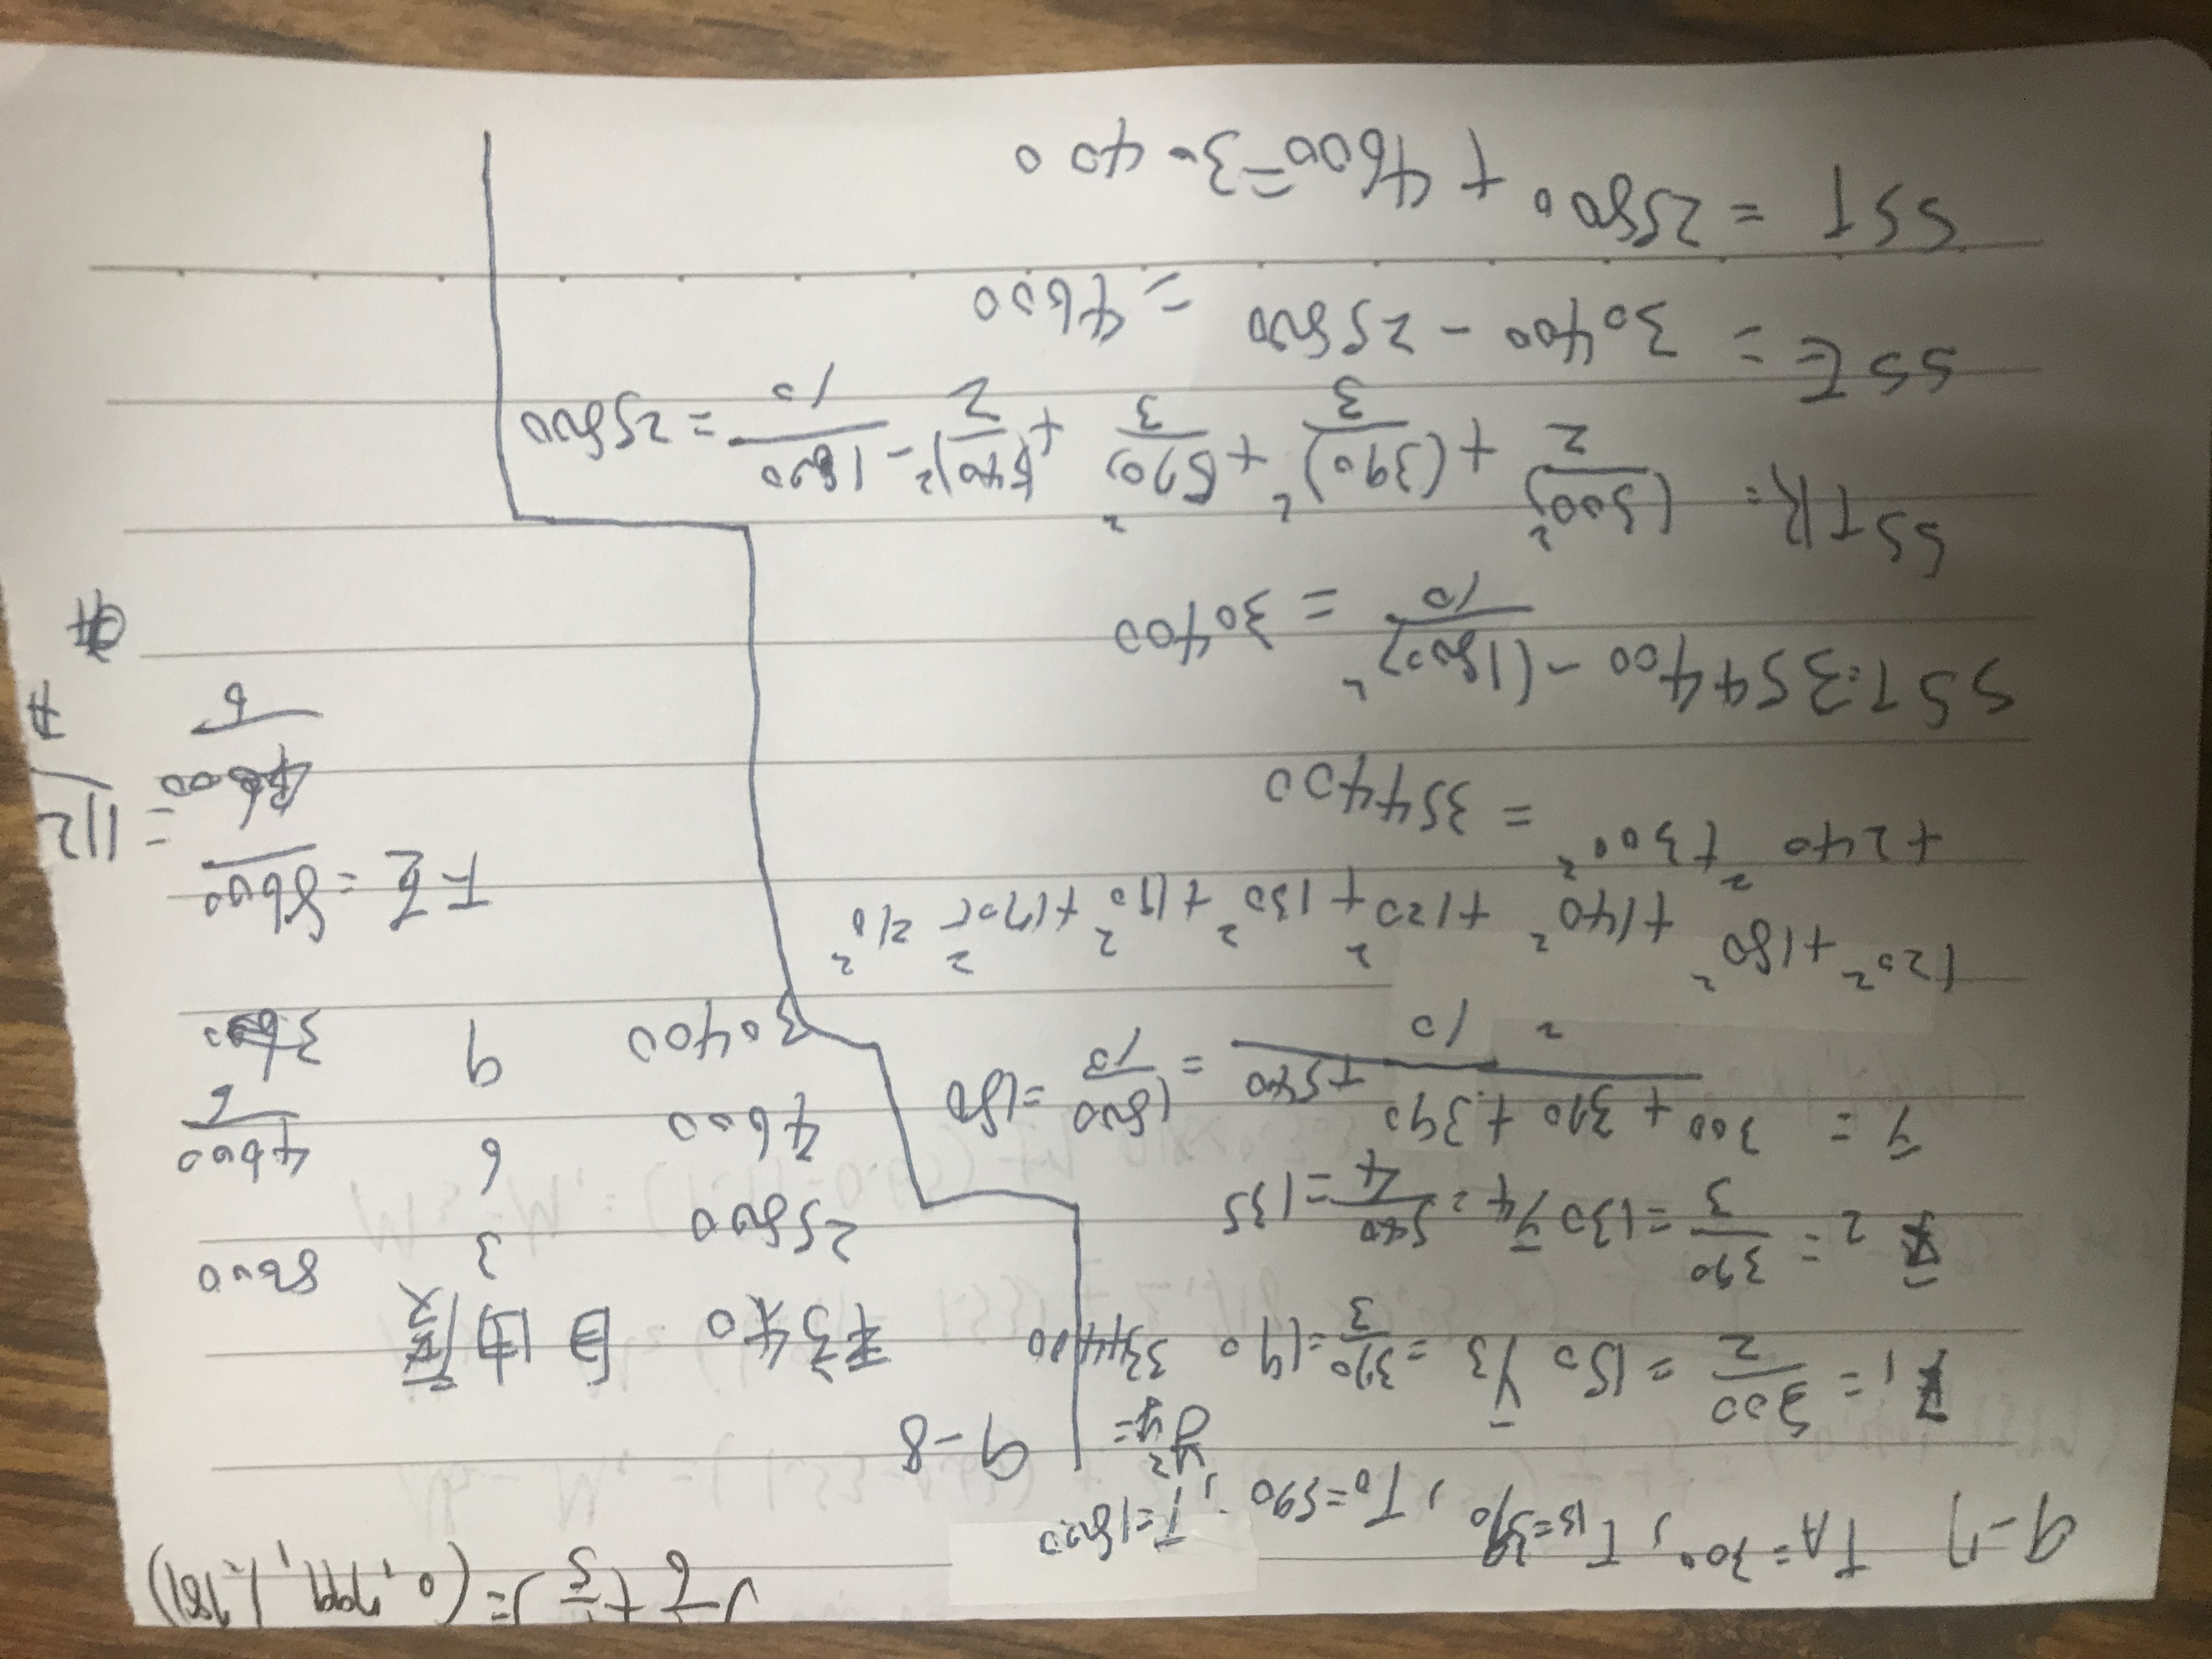 √(1/6 + 1/5) = (0.799, 1.781)
9-7 T_A=300, T_B=390, T_D=590, T=1800
ȳ1 = 300/2 = 150 ȳ3 = 390/3 = 190 34400
ȳ2 = 390/3 = 130 ȳ4 = 540/4 = 135
ȳ = 300 + 390 + 390 + 540 / 10 = 1800/10 = 180
120² + 180² + 140² + 120² + 130² + 110² + 170² 210²
+ 240² + 300² = 354400
SST = 354400 - (1800)²/10 = 30400
SSTR = (300)²/2 + (390)²/3 + (570)²/3 + (540)²/2 - 1800/10 = 25800
SSE = 30400 - 25800 = 4600
SST = 25800 + 4600 = 30400
9-8
平方和 自由度
25800 3 8600
4600 6 4600/6
30400 9
F = 8600 / 4600/6 = 112